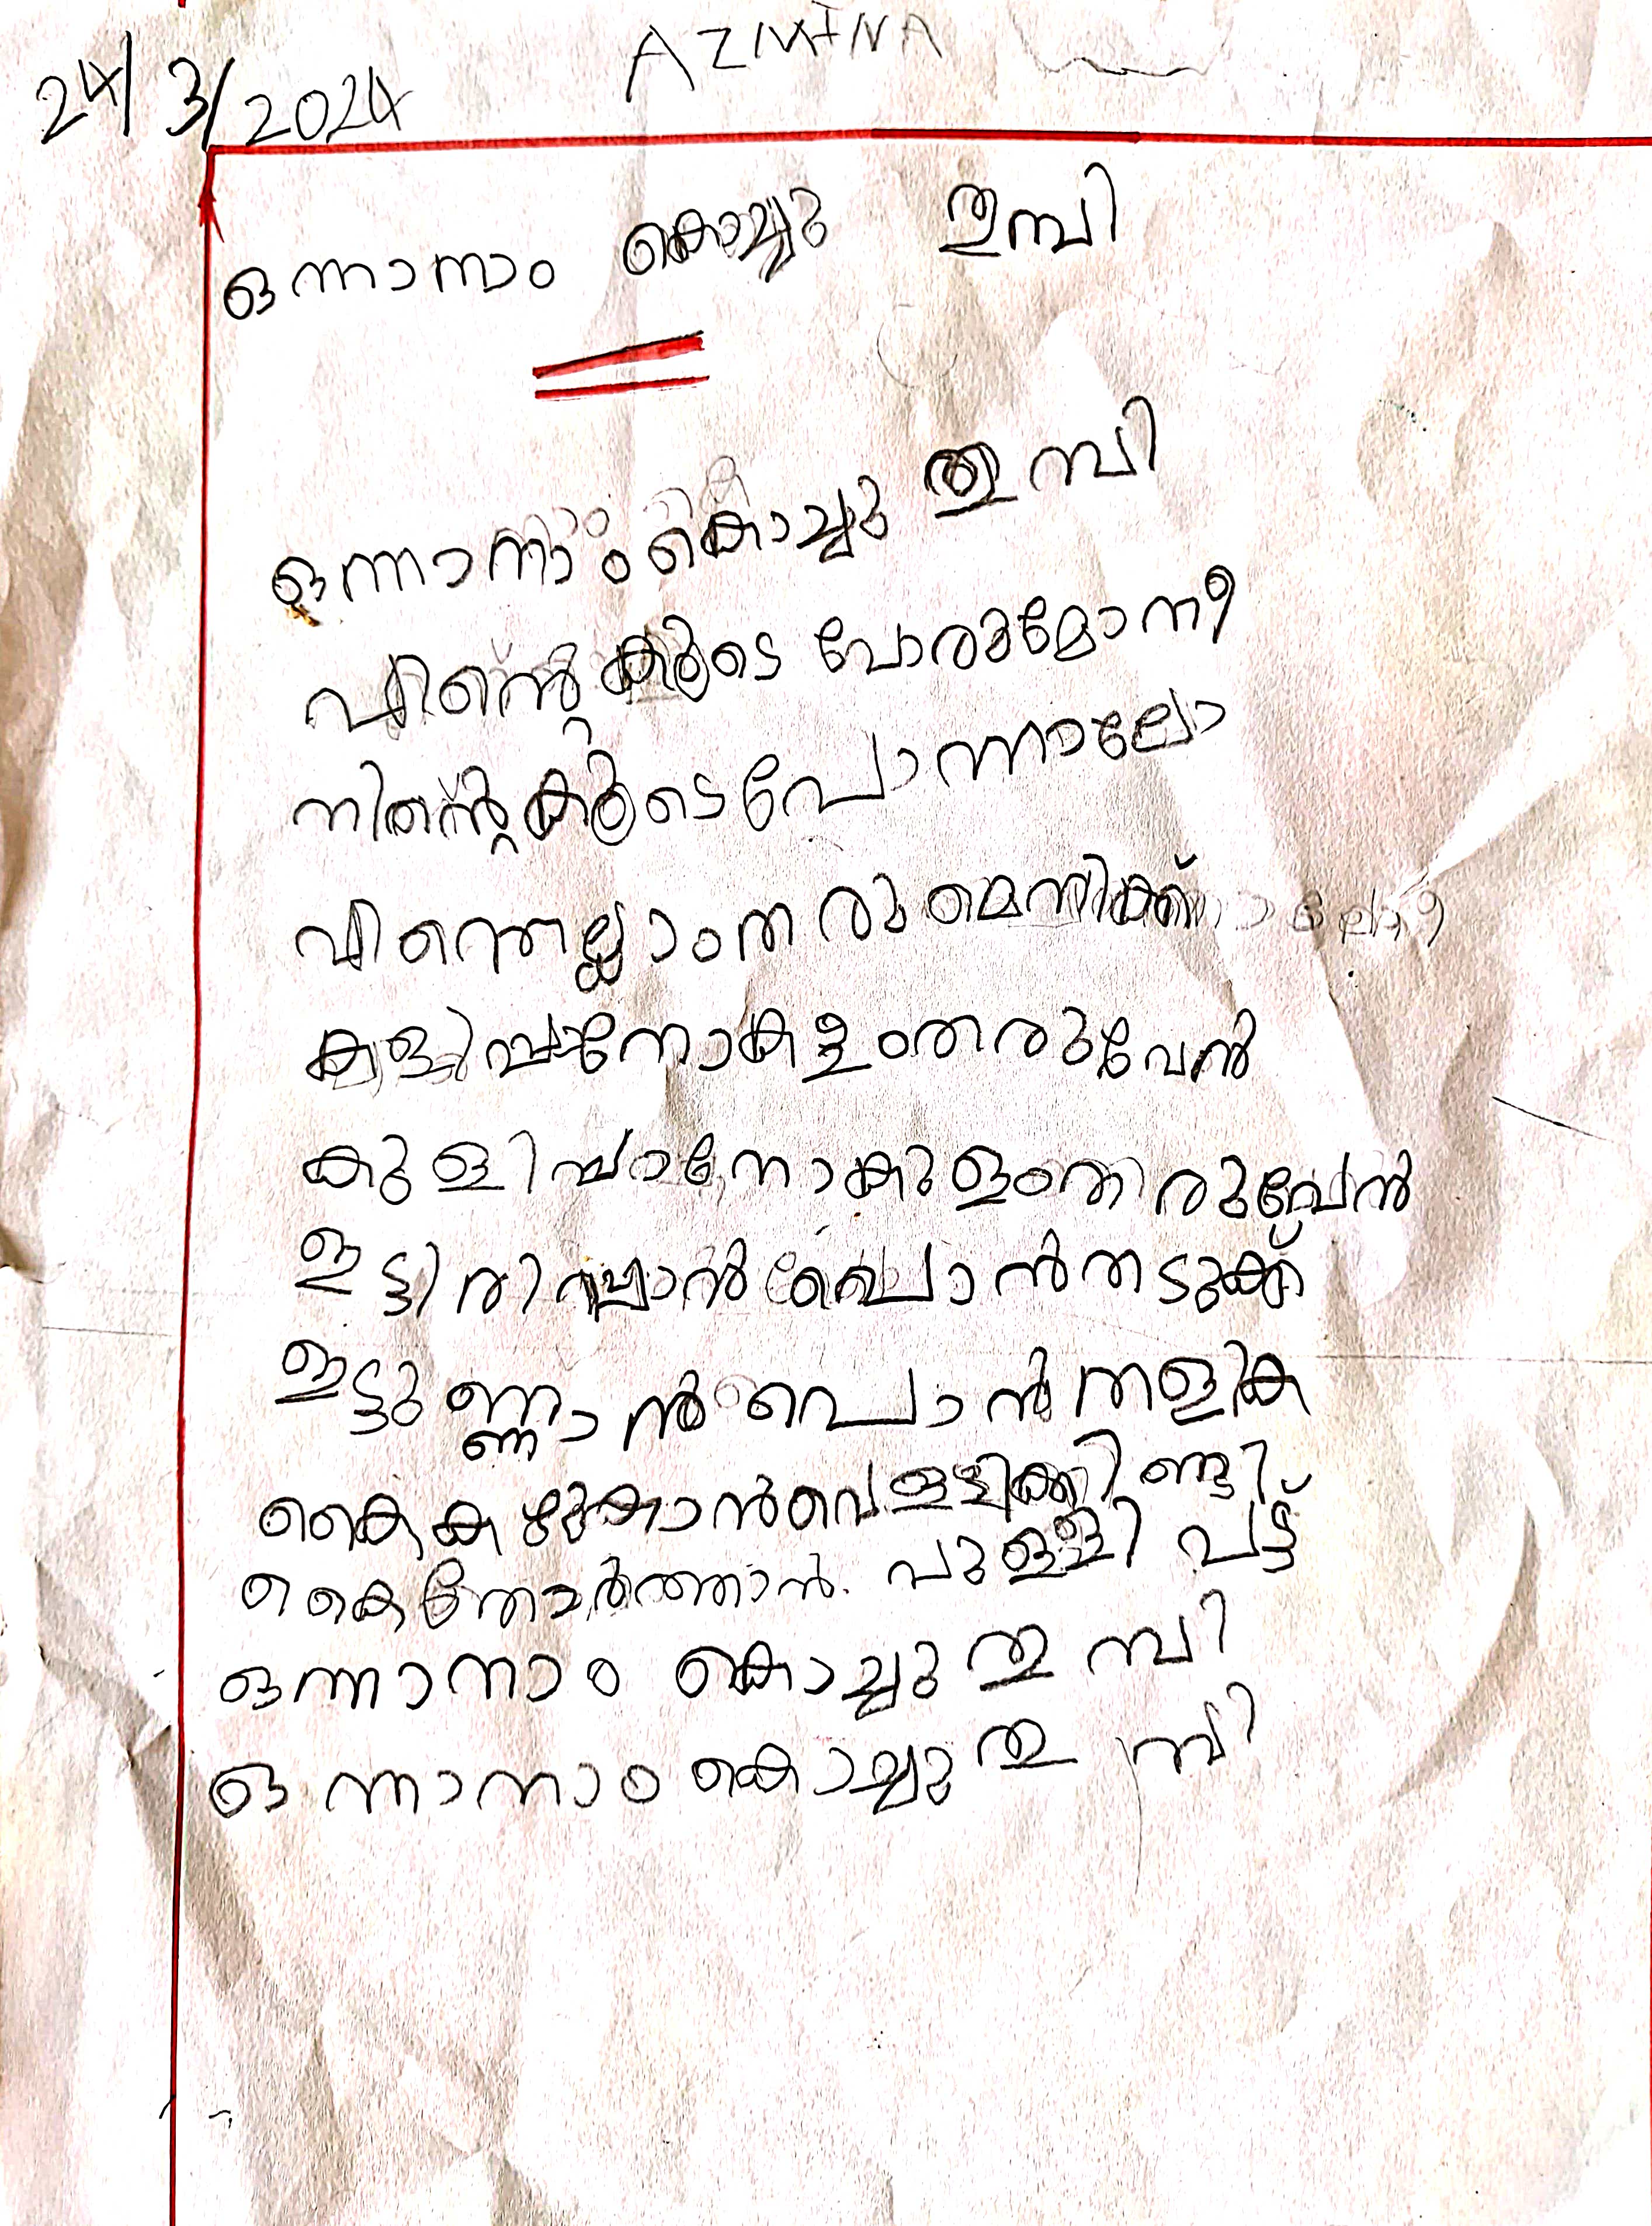 24/3/2024
AZMINA
ഒന്നാനാം കൊച്ചു തുമ്പി
ഒന്നാനാം കൊച്ചു തുമ്പി
എന്റെകൂടെ പോരുമോനീ
നിന്റെകൂടെപോന്നാലോ
എന്തെല്ലാംതരുമെനിക്ക്
കളിപ്പാനോകളംതരുവേൻ
കുളിപ്പാനോകുളംതരുവേൻ
ഇട്ടിരിപ്പാൻപൊൻതടുക്ക്
ഇട്ടുണ്ണാൻപൊൻതളിക
കൈകഴുകാൻവെള്ളിക്കിണ്ടി
കൈതോർത്താൻ. പുള്ളി പട്ട്
ഒന്നാനാം കൊച്ചു തുമ്പി
ഒന്നാനാം കൊച്ചു തുമ്പി